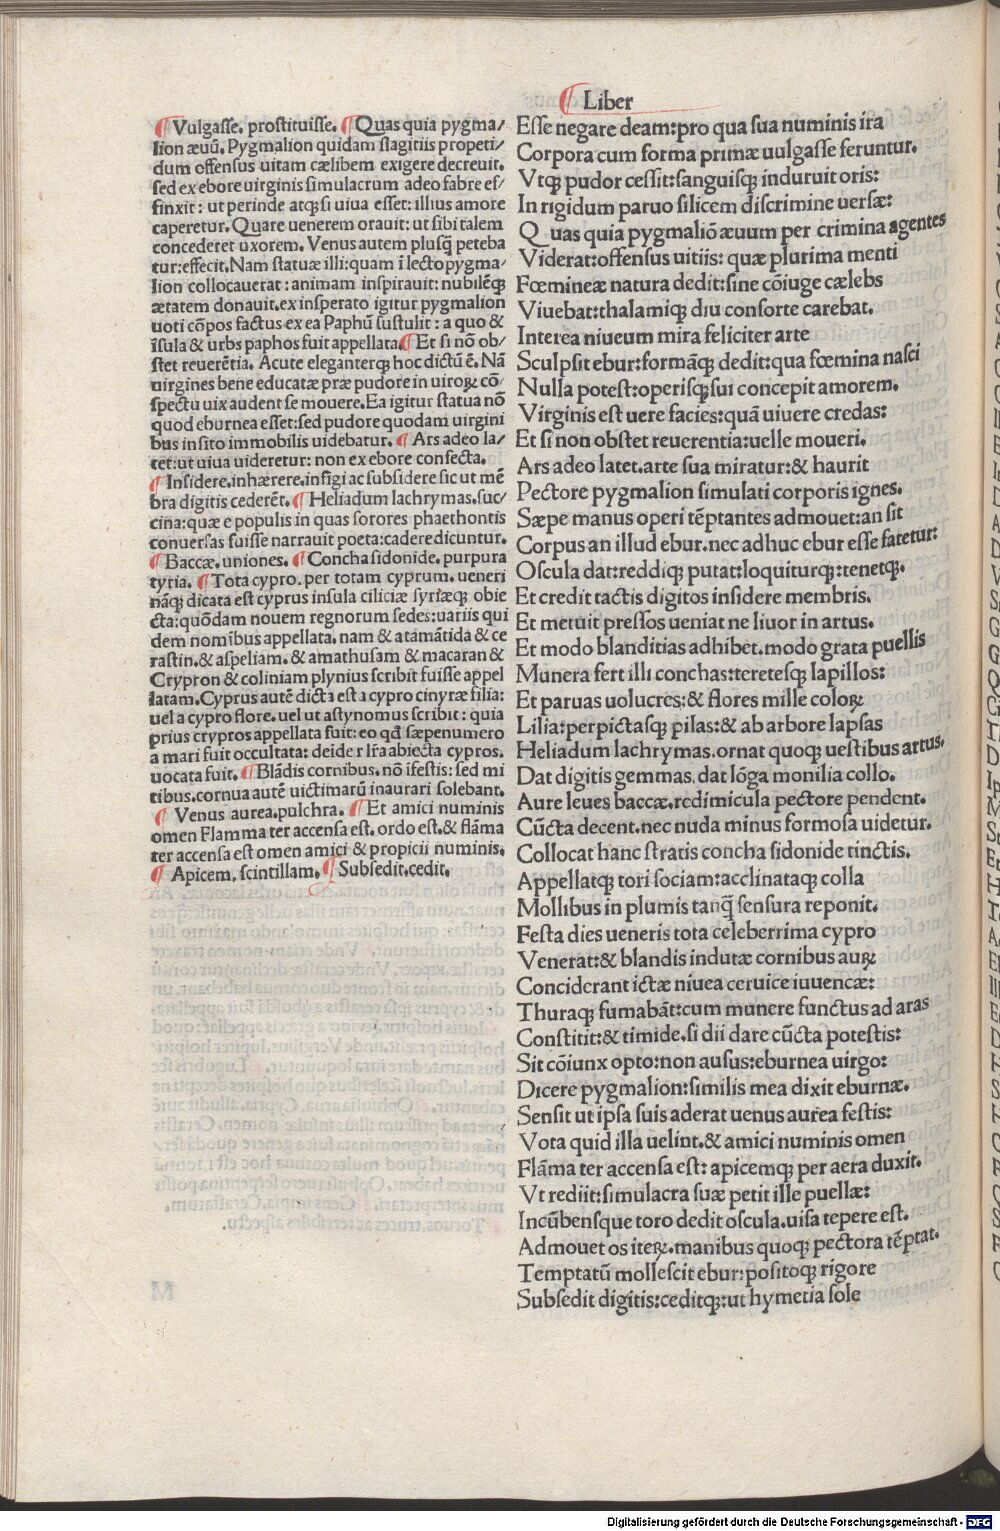 ¶ Liber
¶ Vulgasse. prostituisse. ¶ Quas quia pygma/
lion æuũ. Pygmalion quidam flagitiis propeti/
dum offensus uitam cælibem exigere decreuit.
sed ex ebore uirginis simulacrum adeo fabre ef/
finxit: ut perinde atqꝫ si uiua esset: illius amore
caperetur. Quare uenerem orauit: ut sibi talem
concederet uxorem. Venus autem plusq̃ peteba
tur: effecit. Nam statuæ illi: quam ĩ lecto pygma/
lion collocauerat: animam inspirauit: nubilẽqꝫ
ætatem donauit. ex insperato igitur pygmalion
uoti cõpos factus ex ea Paphũ sustulit: a quo &
ĩsula & urbs paphos fuit appellata. ¶ Et si nõ ob/
stet reuerẽtia. Acute eleganterqꝫ hoc dictũ ẽ. Nã
uirgines bene educatæ præ pudore in uiroꝝ cõ/
spectu uix audent se mouere. Ea igitur statua nõ
quod eburnea esset: sed pudore quodam uirgini
bus insito immobilis uidebatur. ¶ Ars adeo la/
tet: ut uiua uideretur: non ex ebore confecta.
¶ Insidere. inhærere. insigi ac subsidere sic ut mẽ
bra digitis cederẽt. ¶ Heliadum lachrymas. suc/
cina: quæ e populis in quas sorores phaethontis
conuersas fuisse narrauit poeta: cadere dicuntur.
¶ Baccæ. uniones. ¶ Concha sidonide. purpura
tyria. ¶ Tota cypro. per totam cyprum. ueneri
nãqꝫ dicata est cyprus insula ciliciæ syriæqꝫ obie
cta: quõdam nouem regnorum sedes: uariis qui
dem nomĩbus appellata. nam & atamãtida & ce
rastin. & aspeliam. & amathusam & macaran &
Crypron & coliniam plynius scribit fuisse appel
latam. Cyprus autẽ dicta est a cypro cinyræ filia:
uel a cypro flore. uel ut astynomus scribit: quia
prius cryptos appellata fuit: eo qđ sæpenumero
a mari fuit occultata: deide r lr̃a abiecta cypros.
uocata fuit. ¶ Blãdis cornibus. nõ ifestis: sed mi
tibus. cornua autẽ uictimarũ inaurari solebant.
¶ Venus aurea. pulchra. ¶ Et amici numinis
omen Flamma ter accensa est. ordo est. & flãma
ter accensa est omen amici & propicii numinis.
¶ Apicem. scintillam. ¶ Subsedit. cedit.
Esse negare deam: pro qua sua numinis ira
Corpora cum forma primæ uulgasse feruntur.
Vtqꝫ pudor cessit: sanguisqꝫ induruit oris:
In rigidum paruo silicem discrimine uersæ:
Quas quia pygmaliõ æuum per crimina agentes
Viderat: offensus uitiis: quæ plurima menti
Fœmineæ natura dedit: sine cõiuge cælebs
Viuebat: thalamiqꝫ diu consorte carebat.
Interea niueum mira feliciter arte
Sculpsit ebur: formãqꝫ dedit: qua fœmina nasci
Nulla potest: operisqꝫ sui concepit amorem.
Virginis est uere facies: quã uiuere credas:
Et si non obstet reuerentia: uelle moueri.
Ars adeo latet. arte sua miratur: & haurit
Pectore pygmalion simulati corporis ignes.
Sæpe manus operi tẽptantes admouet: an sit
Corpus an illud ebur. nec adhuc ebur esse fatetur:
Oscula dat: reddiqꝫ putat: loquiturqꝫ: tenetqꝫ.
Et credit tactis digitos insidere membris.
Et metuit pressos ueniat ne liuor in artus.
Et modo blanditias adhibet. modo grata puellis
Munera fert illi conchas: teretesqꝫ lapillos:
Et paruas uolucres: & flores mille coloꝝ
Lilia: perpictasqꝫ pilas: & ab arbore lapsas
Heliadum lachrymas. ornat quoqꝫ uestibus artus.
Dat digitis gemmas. dat lõga monilia collo.
Aure leues baccæ. redimicula pectore pendent.
Cũcta decent. nec nuda minus formosa uidetur.
Collocat hanc stratis concha sidonide tinctis.
Appellatqꝫ tori sociam: acclinataqꝫ colla
Mollibus in plumis tanq̃ sensura reponit.
Festa dies ueneris tota celeberrima cypro
Venerat: & blandis indutæ cornibus auꝝ
Conciderant ictæ niuea ceruice iuuencæ:
Thuraqꝫ fumabãt: cum munere functus ad aras
Constitit: & timide. si dii dare cũcta potestis:
Sit cõiunx opto: non ausus: eburnea uirgo:
Dicere pygmalion: similis mea dixit eburnæ.
Sensit ut ipsa suis aderat uenus aurea festis:
Vota quid illa uelint. & amici numinis omen
Flãma ter accensa est: apicemqꝫ per aera duxit.
Vt rediit: simulacra suæ petit ille puellæ:
Incũbensque toro dedit oscula. uisa tepere est.
Admouet os iteꝝ. manibus quoqꝫ pectora tẽptat.
Temptatũ mollescit ebur: positoqꝫ rigore
Subsedit digitis: ceditqꝫ: ut hymetia sole
Digitalisierung gefördert durch die Deutsche Forschungsgemeinschaft - DFG